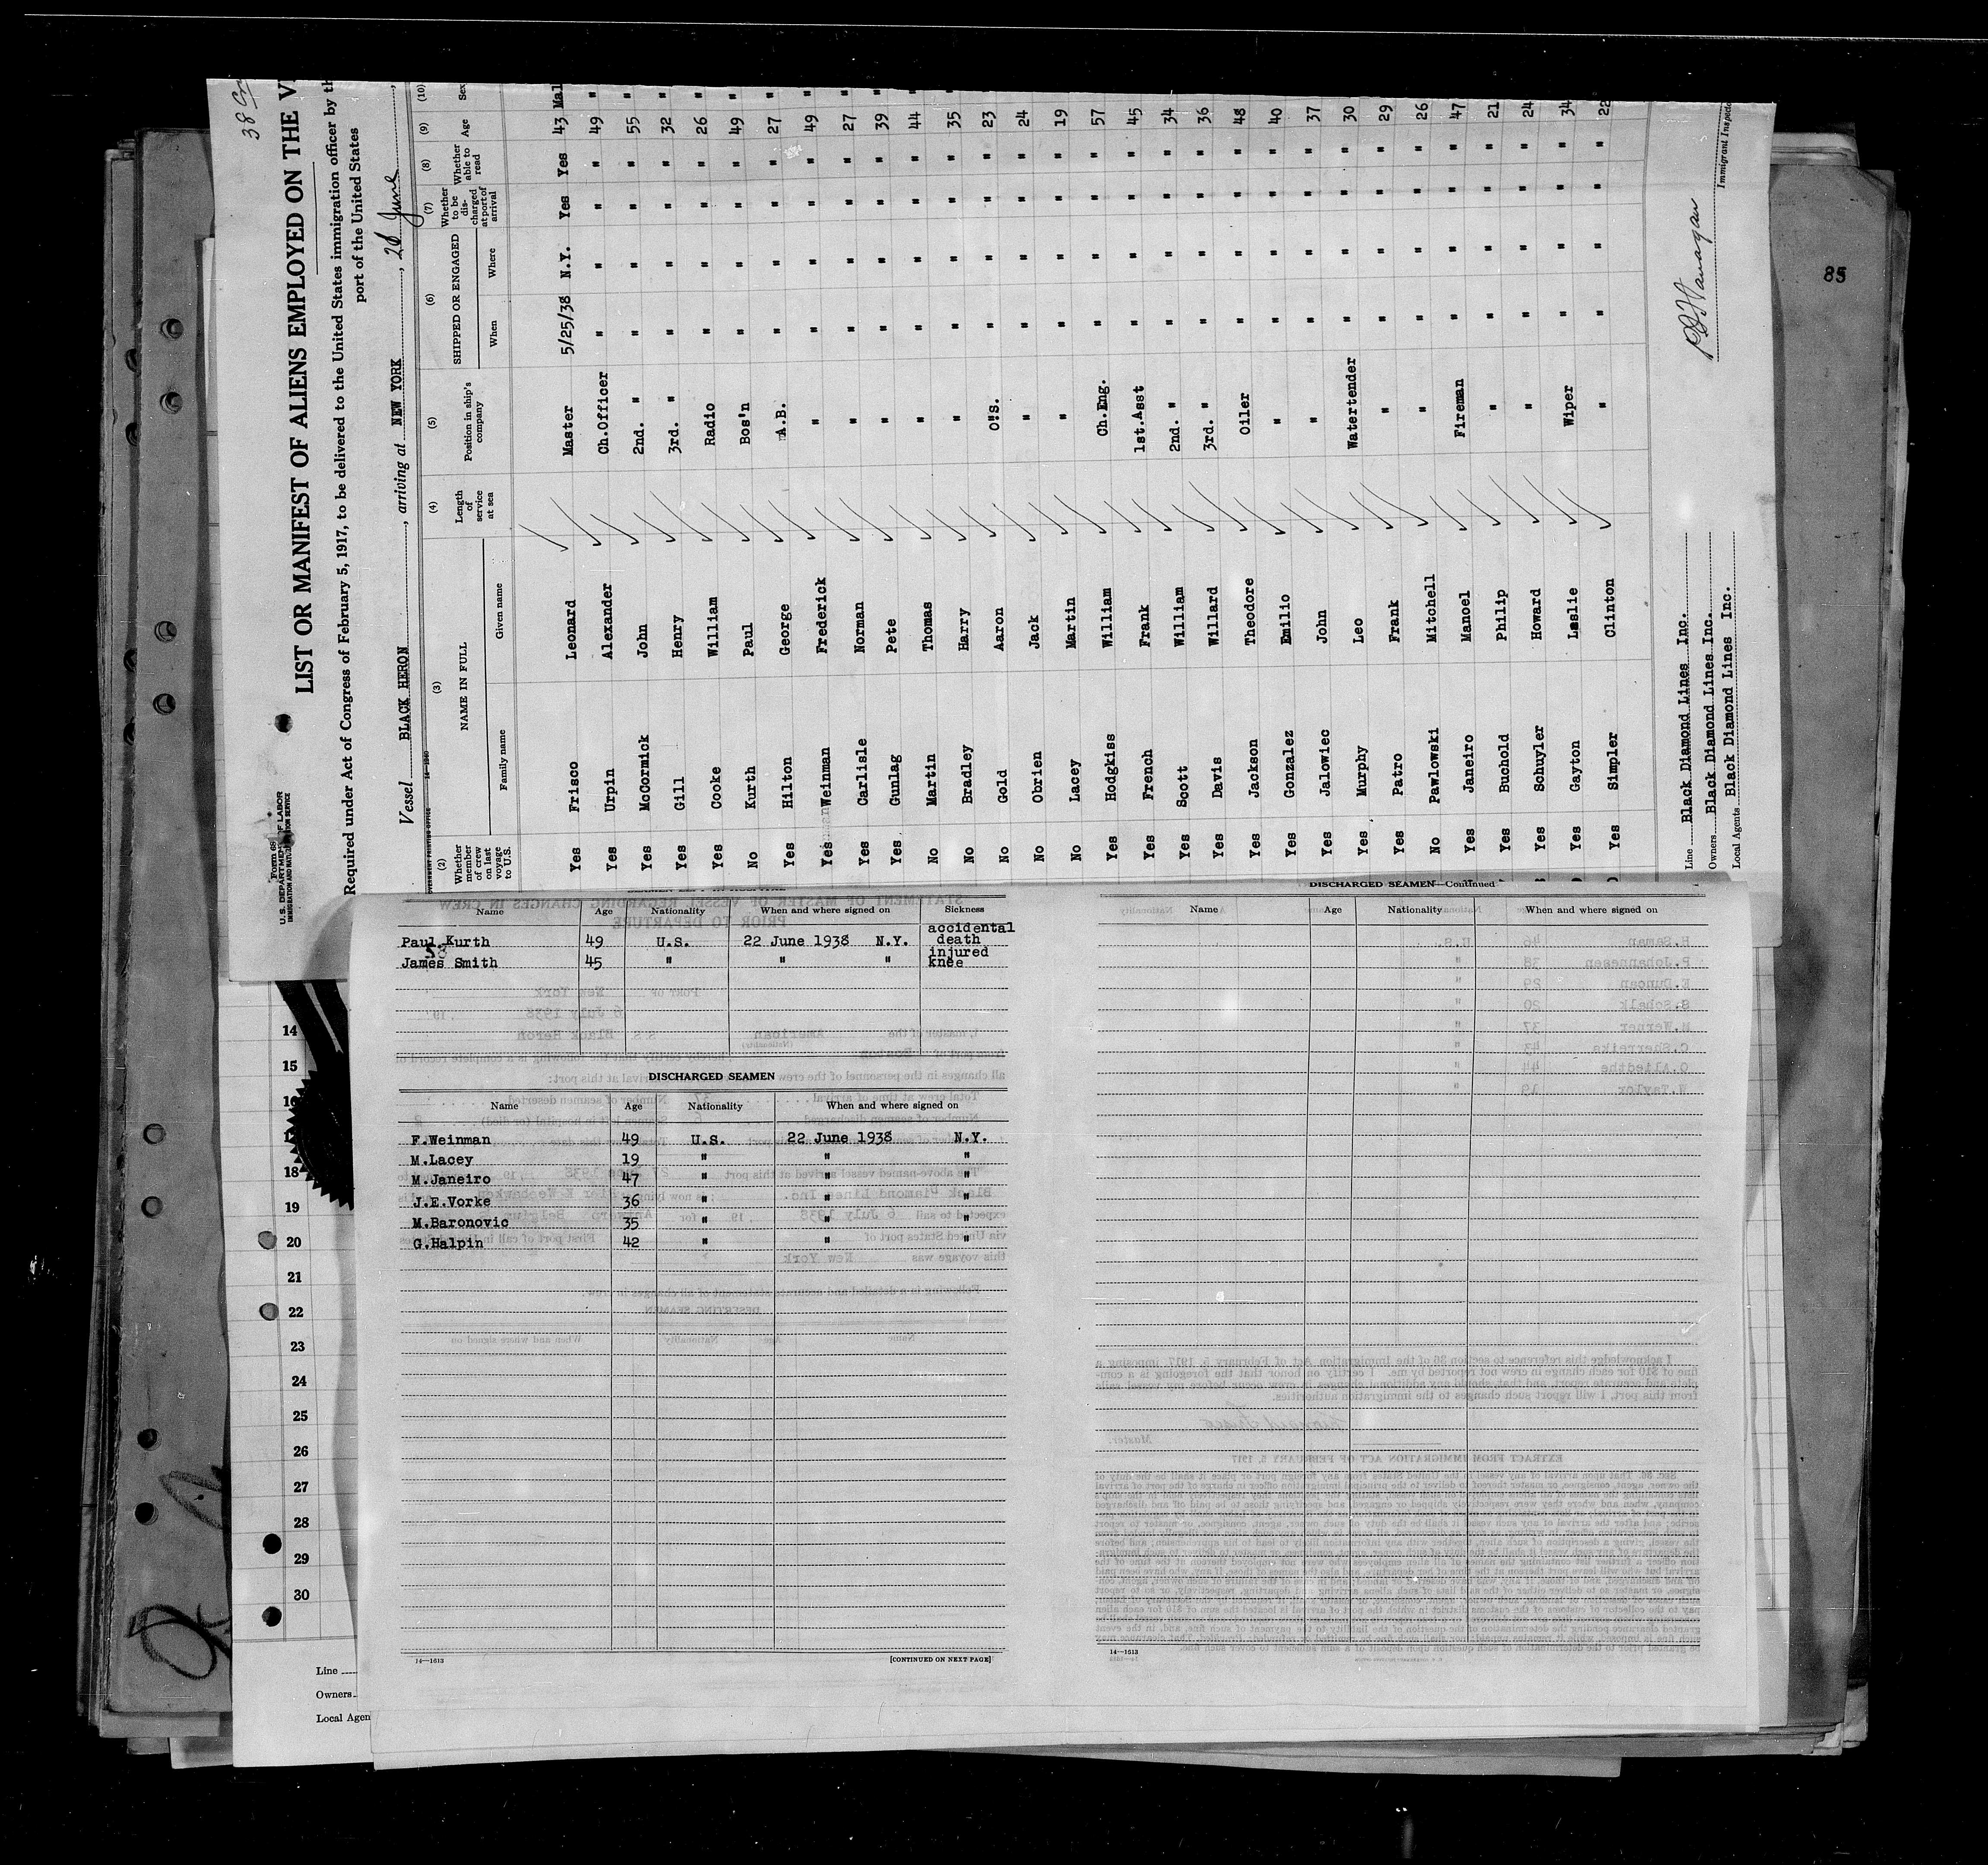 38
LIST OR MANIFEST OF ALIENS EMPLOYED ON THE
Required under Act of Congress of February 5, 1917, to be delivered to the United States immigration officer by
port of the United States
Form 68
U.S. DEPARTMENT OF LABOR
IMMIGRATION AND NATURALIZATION SERVICE
Vessel BLACK HERON, arriving at NEW YORK, June
(2) (3) (4) (5) (6) (7) (8) (9) (10)
Whether member of crew on last voyage to U.S. NAME IN FULL Family name Given name Length of service at sea Position in ship's company SHIPPED OR ENGAGED When Where Whether to be discharged at port of arrival Whether able to read Age Sex
Yes Frisco Leonard Master 5/25/38 N.Y. Yes Yes 43 Mal
Yes Urpin Alexander Ch.Officer " " " " 49 "
Yes McCormick John 2nd. " " " " " 55 "
Yes Gill Henry 3rd. " " " " " 32 "
Yes Cooke William Radio " " " " 26 "
No Kurth Paul Bos'n " " " " 49 "
Yes Hilton George A.B. " " " " 27 "
Yes Weinman Frederick " " " " " 49 "
Yes Carlisle Norman " " " " " 27 "
Yes Gunlag Pete " " " " " 39 "
No Martin Thomas " " " " " 44 "
No Bradley Harry " " " " " 35 "
No Gold Aaron O"S. " " " " 23 "
No Obrien Jack " " " " " 24
No Lacey Martin " " " " " 19
Yes Hodgkiss William Ch.Eng. " " " " 57
Yes French Frank 1st.Asst " " " " 45
Yes Scott William 2nd. " " " " " 34
Yes Davis Willard 3rd. " " " " " 36
Yes Jackson Theodore Oiler " " " " 48
Yes Gonzalez Emilio " " " " " 40
Yes Jalowiec John " " " " " 37
Yes Murphy Leo Watertender " " " " 30
Yes Patro Frank " " " " " 29
No Pawlowski Mitchell " " " " " 26
Yes Janeiro Manoel Fireman " " " " 47
Yes Buchold Philip " " " " " 21
Yes Schuyler Howard " " " " " 24
Yes Gayton Leslie Wiper " " " " 34
Yes Simpler Clinton " " " " " 22
Line Black Diamond Lines Inc.
Owners Black Diamond Lines Inc.
Local Agents Black Diamond Lines Inc.
Immigrant Inspector
85
Name Age Nationality When and where signed on Sickness
Paul Kurth 49 U.S. 22 June 1938 N.Y. accidental death
58
James Smith 45 " " " injured knee
DISCHARGED SEAMEN
Name Age Nationality When and where signed on
F.Weinman 49 U.S. 22 June 1938 N.Y.
M.Lacey 19 " " "
M.Janeiro 47 " " "
J.E.Vorke 36 " " "
M.Baronovic 35 " " "
G.Halpin 42 " " "
14—1613
[CONTINUED ON NEXT PAGE]
DISCHARGED SEAMEN—Continued
Name Age Nationality When and where signed on
14—1613
14
15
16
18
19
20
21
22
23
24
25
26
27
28
29
30
Line
Owners
Local Agen